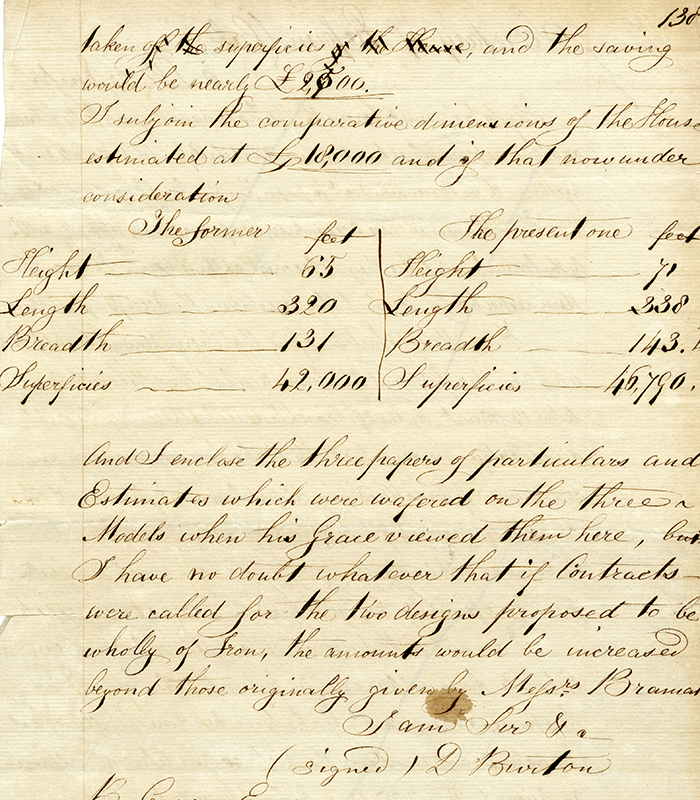 138
taken of the superficies of the House, and the saving
would be nearly £2,500.
I subjoin the comparative dimensions of the House
estimated at £18,000 and of that now under
consideration
The former feet The present one feet
Height 65 Height 71
Length 320 Length 338
Breadth 131 Breadth 143.
Superficies 42,000 Superficies 46,790.
And I enclose the three papers of particulars and
Estimates which were wafered on the three
Models when his Grace viewed them here, but
I have no doubt whatever that if Contracts
were called for the two designs proposed to be
wholly of Iron, the amounts would be increased
beyond those originally given by Messrs Bramah
I am Sir &c
(signed) D Burton